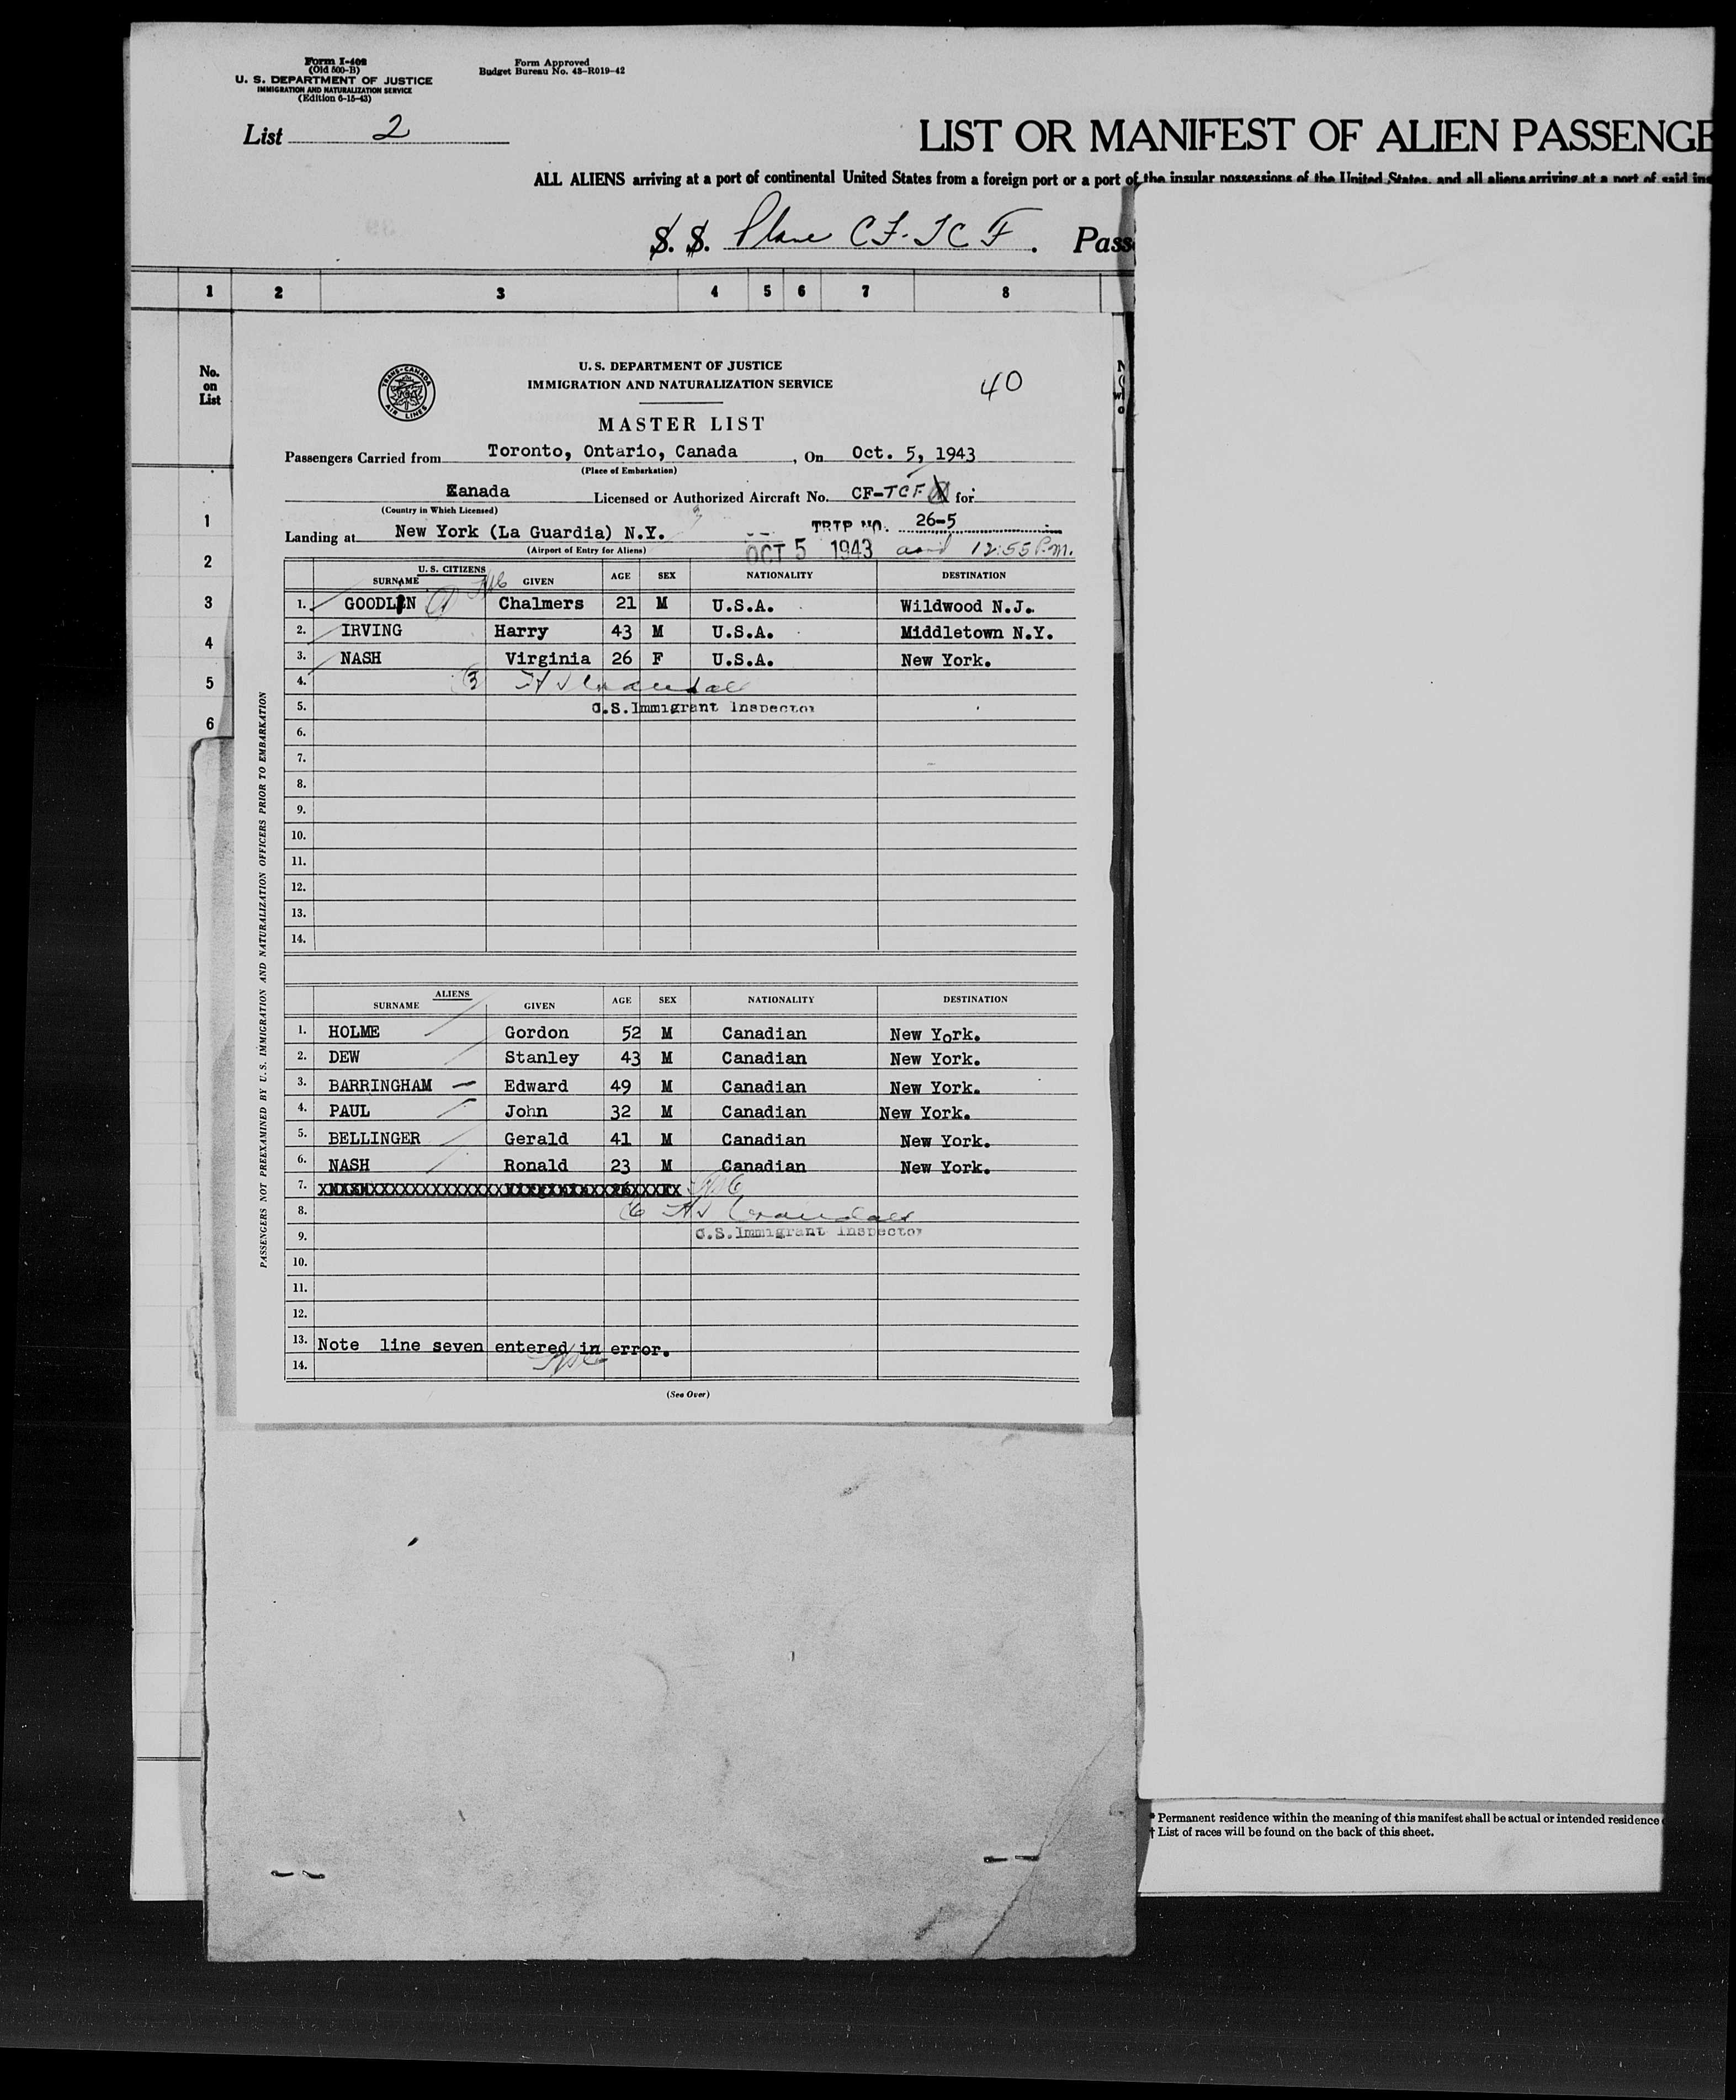 Form I-409
(Old 500-B)
U. S. DEPARTMENT OF JUSTICE
IMMIGRATION AND NATURALIZATION SERVICE
(Edition 6-15-43)
Form Approved
Budget Bureau No. 43-R019-42
List 2
LIST OR MANIFEST OF ALIEN PASSENGE
ALL ALIENS arriving at a port of continental United States from a foreign port or a port of the insular possessions of the United States, and all aliens arriving at a port of said ins
S. S. Plane CF-TCF. Pass
1 2 3 4 5 6 7 8
No.
on
List
1
2
3
4
5
6
TRANS-CANADA AIR LINES
U. S. DEPARTMENT OF JUSTICE
IMMIGRATION AND NATURALIZATION SERVICE
40
MASTER LIST
Passengers Carried from Toronto, Ontario, Canada, On Oct. 5, 1943
(Place of Embarkation)
Kanada Licensed or Authorized Aircraft No. CF-TCF for
(Country in Which Licensed)
TRIP NO. 26-5
Landing at New York (La Guardia) N.Y. OCT 5 1943 arrd 12:55 P.M.
(Airport of Entry for Aliens)
U. S. CITIZENS
SURNAME GIVEN AGE SEX NATIONALITY DESTINATION
1. GOODLIN Chalmers 21 M U.S.A. Wildwood N.J.
2. IRVING Harry 43 M U.S.A. Middletown N.Y.
3. NASH Virginia 26 F U.S.A. New York.
4. 3
5. U.S. Immigrant Inspector
6.
7.
8.
9.
10.
11.
12.
13.
14.
ALIENS
SURNAME GIVEN AGE SEX NATIONALITY DESTINATION
1. HOLME Gordon 52 M Canadian New York.
2. DEW Stanley 43 M Canadian New York.
3. BARRINGHAM Edward 49 M Canadian New York.
4. PAUL John 32 M Canadian New York.
5. BELLINGER Gerald 41 M Canadian New York.
6. NASH Ronald 23 M Canadian New York.
7.
8. 6
9. U.S. Immigrant Inspector
10.
11.
12.
13. Note line seven entered in error.
14.
(See Over)
PASSENGERS NOT PREEXAMINED BY U.S. IMMIGRATION AND NATURALIZATION OFFICERS PRIOR TO EMBARKATION
* Permanent residence within the meaning of this manifest shall be actual or intended residence
† List of races will be found on the back of this sheet.